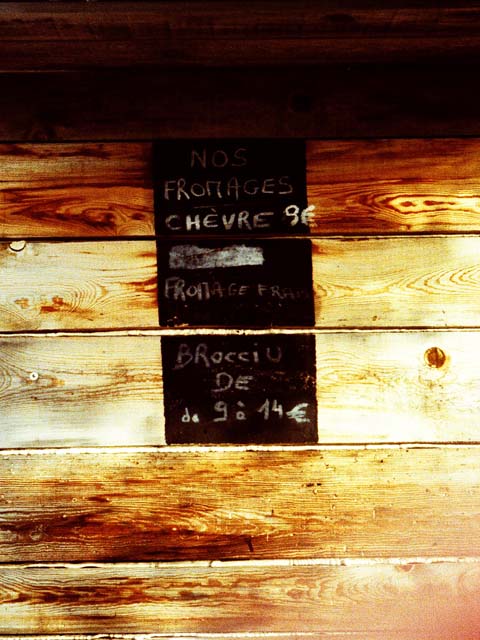 NOS
FROMAGES
CHÈVRE 9€
FROMAGE FRAIS
BROCCIU
DE
de 9 à 14€